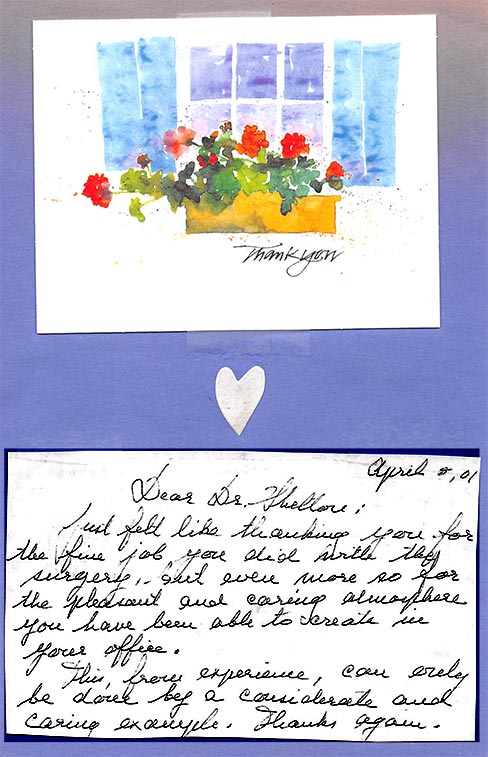 Thank you
April , 01
Dear Dr.
Just felt like thanking you for
the fine job you did with my
surgery, but even more so for
the pleasant and caring atmosphere
you have been able to create in
your office.
This, from experience, can only
be done by a considerate and
caring example. Thanks again.